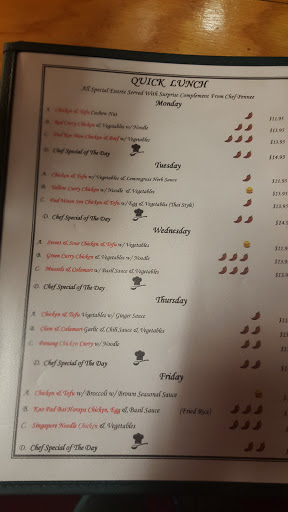 QUICK LUNCH
All Special Entrée Served With Surprise Complement From Chef Pennee
Monday
A. Chicken & Tofu Cashew Nut $11.95
B. Red Curry Chicken & Vegetables w/ Noodle
C. Chicken & Beef w/ Vegetables $13.95
D. Chef Special of The Day $14.95
Tuesday
A. Chicken & Tofu w/ Vegetables & Lemongrass Herb Sauce
B. Yellow Curry Chicken w/ Noodle & Vegetables
C. Pad Woon Sen Chicken & Tofu w/ Egg & Vegetables (Thai Style)
D. Chef Special of The Day
Wednesday
A. Sweet & Sour Chicken & Tofu w/ Vegetables
B. Green Curry Chicken & Vegetables w/ Noodle
C. Mussels & Calamari w/ Basil Sauce & Vegetables
D. Chef Special of The Day
Thursday
A. Chicken & Tofu Vegetables w/ Ginger Sauce
B. & Calamari Garlic & Chili Sauce & Vegetables
C. Panang Chicken Curry w/ Noodle
D. Chef Special of The Day
Friday
A. Chicken & Tofu w/ Broccoli w/ Brown Seasonal Sauce
B. Kao Pad Bai Horapa Chicken, Egg & Basil Sauce (Fried Rice)
C. Singapore Noodle Chicken & Vegetables
D. Chef Special of The Day